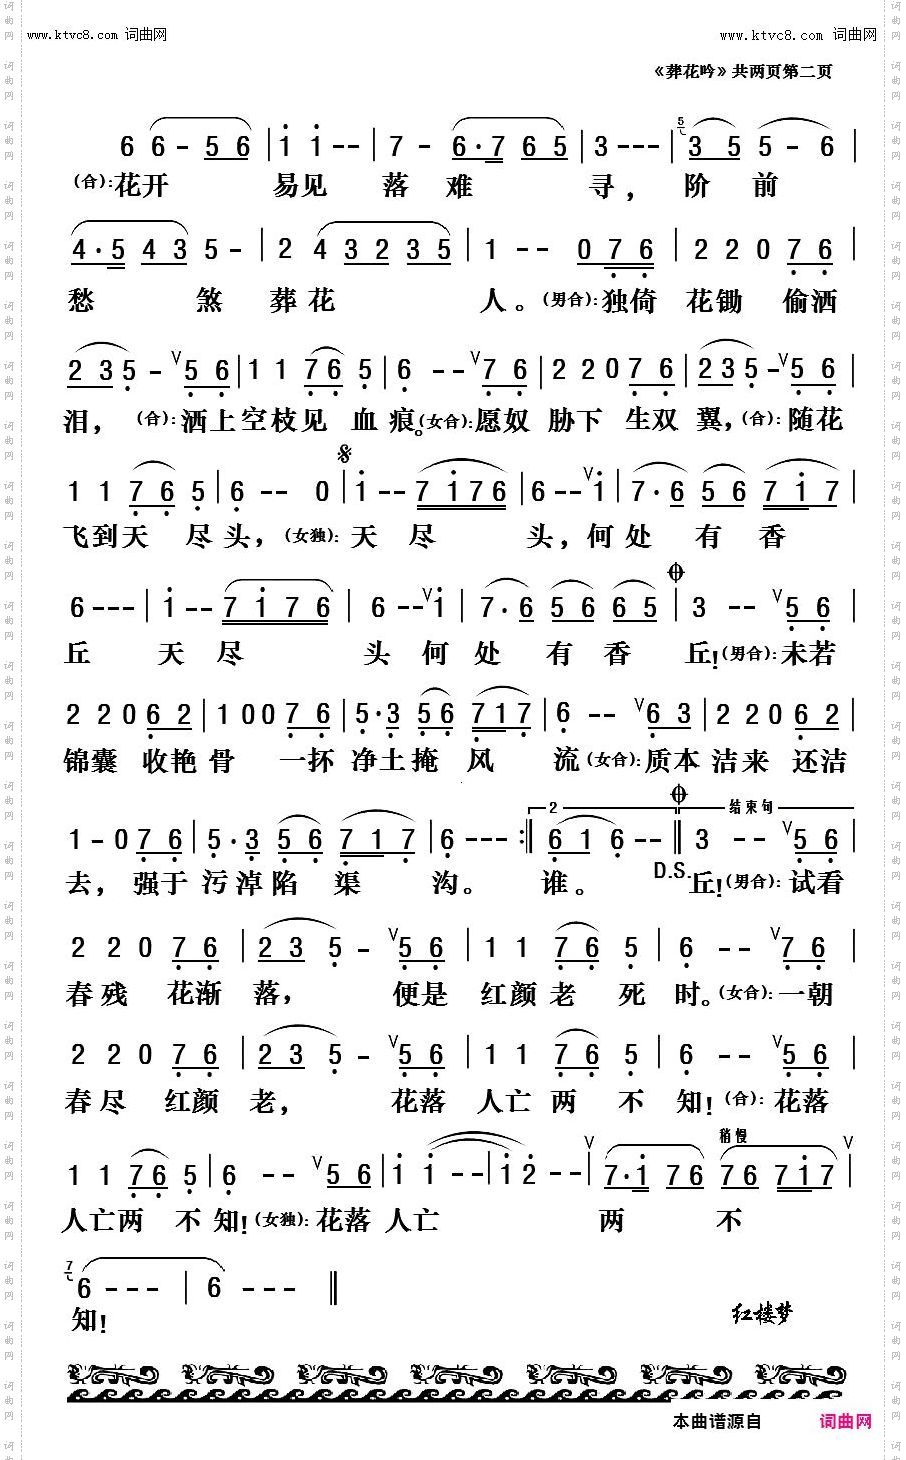 www.ktvc8.com 词曲网 www.ktvc8.com 词曲网
《葬花吟》共两页第二页
6 6 - 5 6 | i i - - | 7 - 6·7 6 5 | 3 - - - | 3 5 5 - 6 |
(合):花开 易见 落 难 寻，阶 前
4·5 4 3 5 - | 2 4 3 2 3 5 | 1 - - 0 7 6 | 2 2 0 7 6 |
愁 煞 葬 花 人。(男合):独倚 花锄 偷洒
2 3 5 - V 5 6 | 1 1 7 6 5 | 6 - - V 7 6 | 2 2 0 7 6 | 2 3 5 - V 5 6 |
泪，(合):洒上空枝见 血痕。(女合):愿奴 胁下 生双 翼，(合):随花
1 1 7 6 5 | 6 - - 0 | i - - 7 i 7 6 | 6 - - V i | 7·6 5 6 7 i 7 |
飞到天 尽头，(女独):天 尽 头，何处 有 香
6 - - - | i - - 7 i 7 6 | 6 - - V i | 7·6 5 6 6 5 | 3 - - V 5 6 |
丘 天 尽 头 何 处 有 香 丘!(男合):未若
2 2 0 6 2 | 1 0 0 7 6 | 5·3 5 6 7 1 7 | 6 - - V 6 3 | 2 2 0 6 2 |
锦囊 收艳 骨 一抔 净土掩 风 流(女合):质本 洁来 还洁
1 - 0 7 6 | 5·3 5 6 7 1 7 | 6 - - - :‖ 2 6 1 6 - - ‖ 结束句 3 - - V 5 6 |
去，强于 污淖陷 渠 沟。 谁。 D.S. 丘!(男合):试看
2 2 0 7 6 | 2 3 5 - V 5 6 | 1 1 7 6 5 | 6 - - V 7 6 |
春残 花渐 落， 便是 红颜 老 死 时。(女合):一朝
2 2 0 7 6 | 2 3 5 - V 5 6 | 1 1 7 6 5 | 6 - - V 5 6 |
春尽 红颜 老， 花落 人亡 两 不 知!(合):花落
稍慢
1 1 7 6 5 | 6 - - V 5 6 | i i - - | i 2 - - V | 7·i 7 6 7 6 7 i 7 V |
人亡两 不 知!(女独):花落 人亡 两 不
6 - - - | 6 - - - ‖
知!
红楼梦
本曲谱源自 词曲网